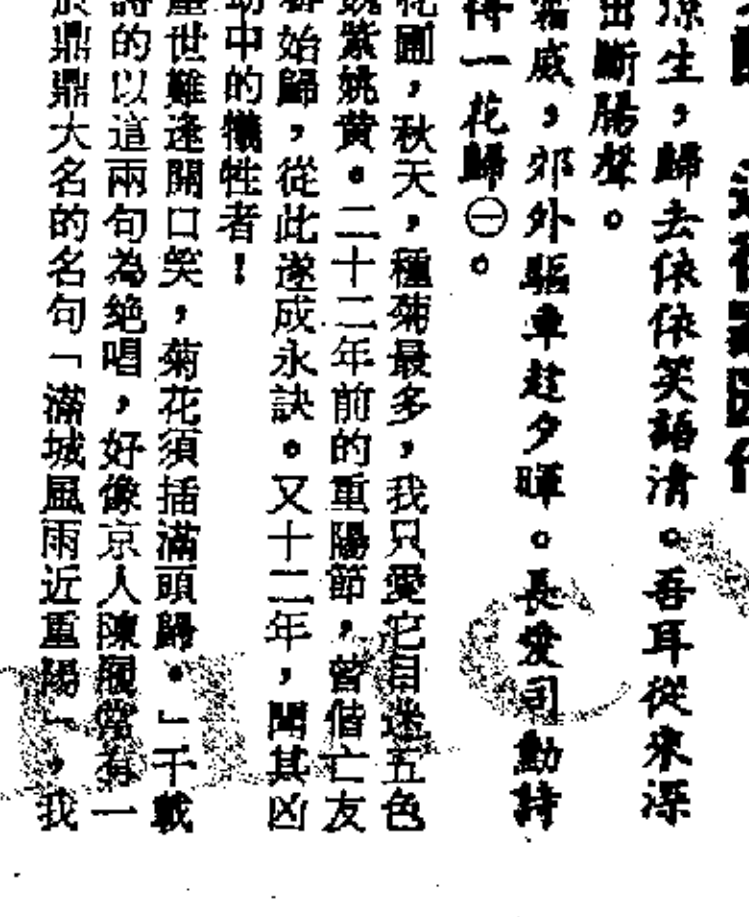 涼生，歸去依依笑語清。吾耳從來深
出斷腸聲。
霜威，郊外驅車赴夕暉。長愛司勳詩
得一花歸㊀。
花圃，秋天，種菊最多，我只愛它目迷五色
魏紫姚黄。二十二年前的重陽節，曾偕亡友
始歸，從此遂成永訣。又十二年，聞其凶
中的犧牲者！
塵世難逢開口笑，菊花須插滿頭歸。」千載
詩的以這兩句為絶唱，好像京人陳覯嘗有一
於鼎鼎大名的名句「滿城風雨近重陽」，我